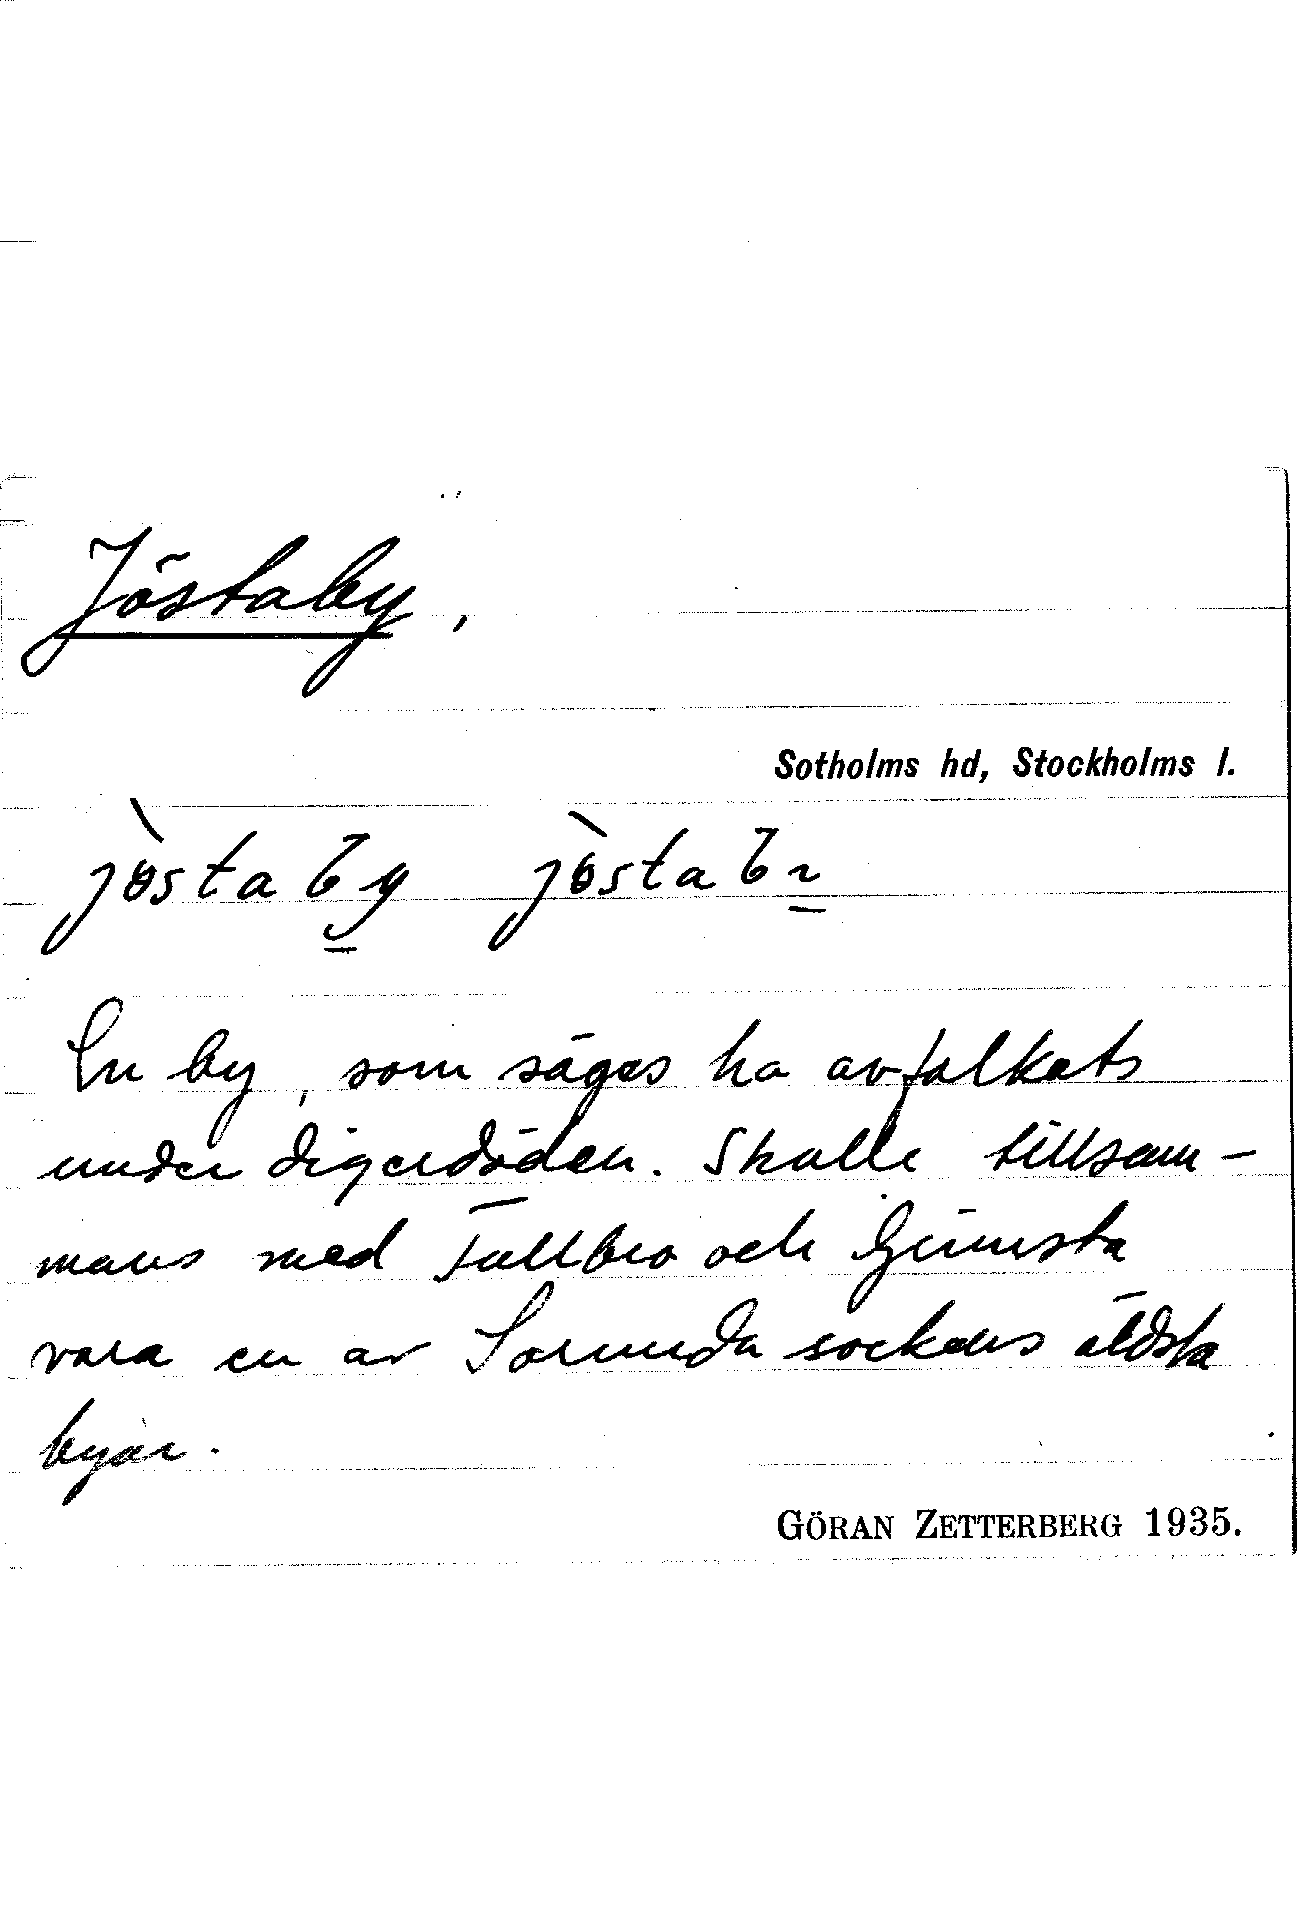 Jöstaby,
Sotholms hd, Stockholms l.
En by, som säges ha avfolkats
under digerdöden. Skulle tillsam-
mans med Fullbro och
vara en av Sorunda sockens äldsta
byar.
GÖRAN ZETTERBERG 1935.